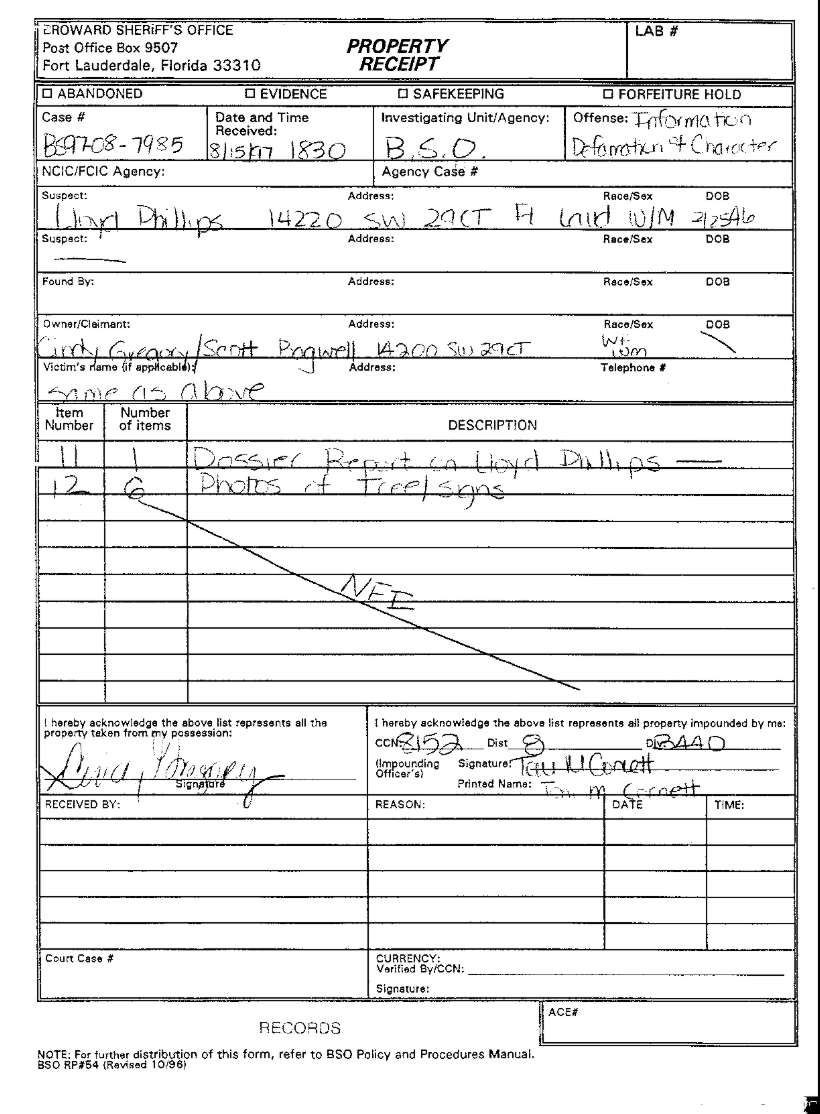 BROWARD SHERIFF'S OFFICE
Post Office Box 9507
Fort Lauderdale, Florida 33310
PROPERTY
RECEIPT
LAB #
☐ ABANDONED ☐ EVIDENCE ☐ SAFEKEEPING ☐ FORFEITURE HOLD
Case # Date and Time Received: Investigating Unit/Agency: Offense: Information
BS97-08-7985 8/15/97 1830 B.S.O. Defamation of Character
NCIC/FCIC Agency: Agency Case #
Suspect: Address: Race/Sex DOB
Lloyd Phillips 14220 SW 29CT Ft Laud W/M
Suspect: Address: Race/Sex DOB
Found By: Address: Race/Sex DOB
Owner/Claimant: Address: Race/Sex DOB
Cindy Gregory/Scott 14200 SW 29CT
Victim's name (if applicable): Address: Telephone #
same as above
Item Number Number of items DESCRIPTION
11 1 Dossier Report on Lloyd Phillips
12 6 Photos of Tree/signs
NFI
I hereby acknowledge the above list represents all the
property taken from my possession:
Signature
I hereby acknowledge the above list represents all property impounded by me:
CCN 8152 Dist 8 DIV
(Impounding Officer's) Signature:
Printed Name: M Cornett
RECEIVED BY: REASON: DATE TIME:
Court Case # CURRENCY:
Verified By/CCN:
Signature:
RECORDS
ACE#
NOTE: For further distribution of this form, refer to BSO Policy and Procedures Manual.
BSO RP#54 (Revised 10/96)